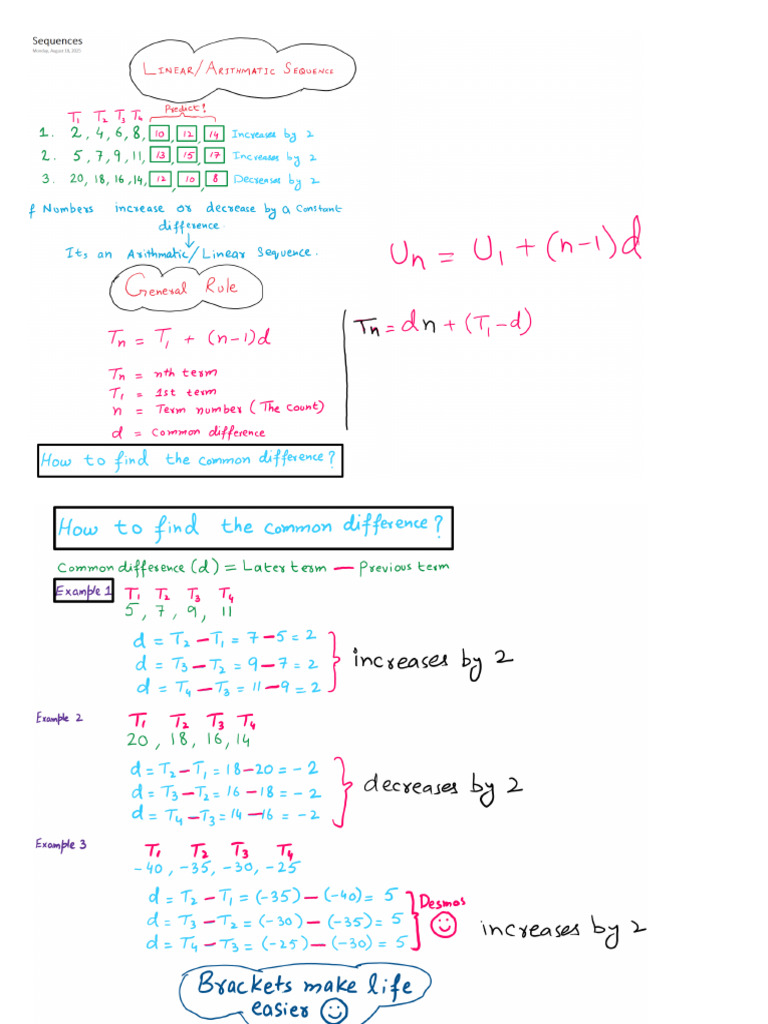 Sequences
Monday, August 18, 2025
LINEAR/ARITHMATIC SEQUENCE
Predict!
T₁ T₂ T₃ T₄
1. 2, 4, 6, 8, 10, 12, 14 Increases by 2
2. 5, 7, 9, 11, 13, 15, 17 Increases by 2
3. 20, 18, 16, 14, 12, 10, 8 Decreases by 2
f Numbers increase or decrease by a Constant
difference.
↓
Its an Arithmatic/Linear Sequence.
Uₙ = U₁ + (n-1)d
General Rule
Tₙ = T₁ + (n-1)d
Tₙ = dn + (T₁-d)
Tₙ = nth term
T₁ = 1st term
n = Term number (The count)
d = Common difference
How to find the common difference?
How to find the common difference?
Common difference (d) = Later term — Previous term
Example 1 T₁ T₂ T₃ T₄
5, 7, 9, 11
d = T₂ - T₁ = 7 - 5 = 2
d = T₃ - T₂ = 9 - 7 = 2
d = T₄ - T₃ = 11 - 9 = 2
increases by 2
Example 2 T₁ T₂ T₃ T₄
20, 18, 16, 14
d = T₂ - T₁ = 18 - 20 = -2
d = T₃ - T₂ = 16 - 18 = -2
d = T₄ - T₃ = 14 - 16 = -2
decreases by 2
Example 3 T₁ T₂ T₃ T₄
-40, -35, -30, -25
d = T₂ - T₁ = (-35) - (-40) = 5
d = T₃ - T₂ = (-30) - (-35) = 5
d = T₄ - T₃ = (-25) - (-30) = 5
Desmos
increases by 2
Brackets make life
easier